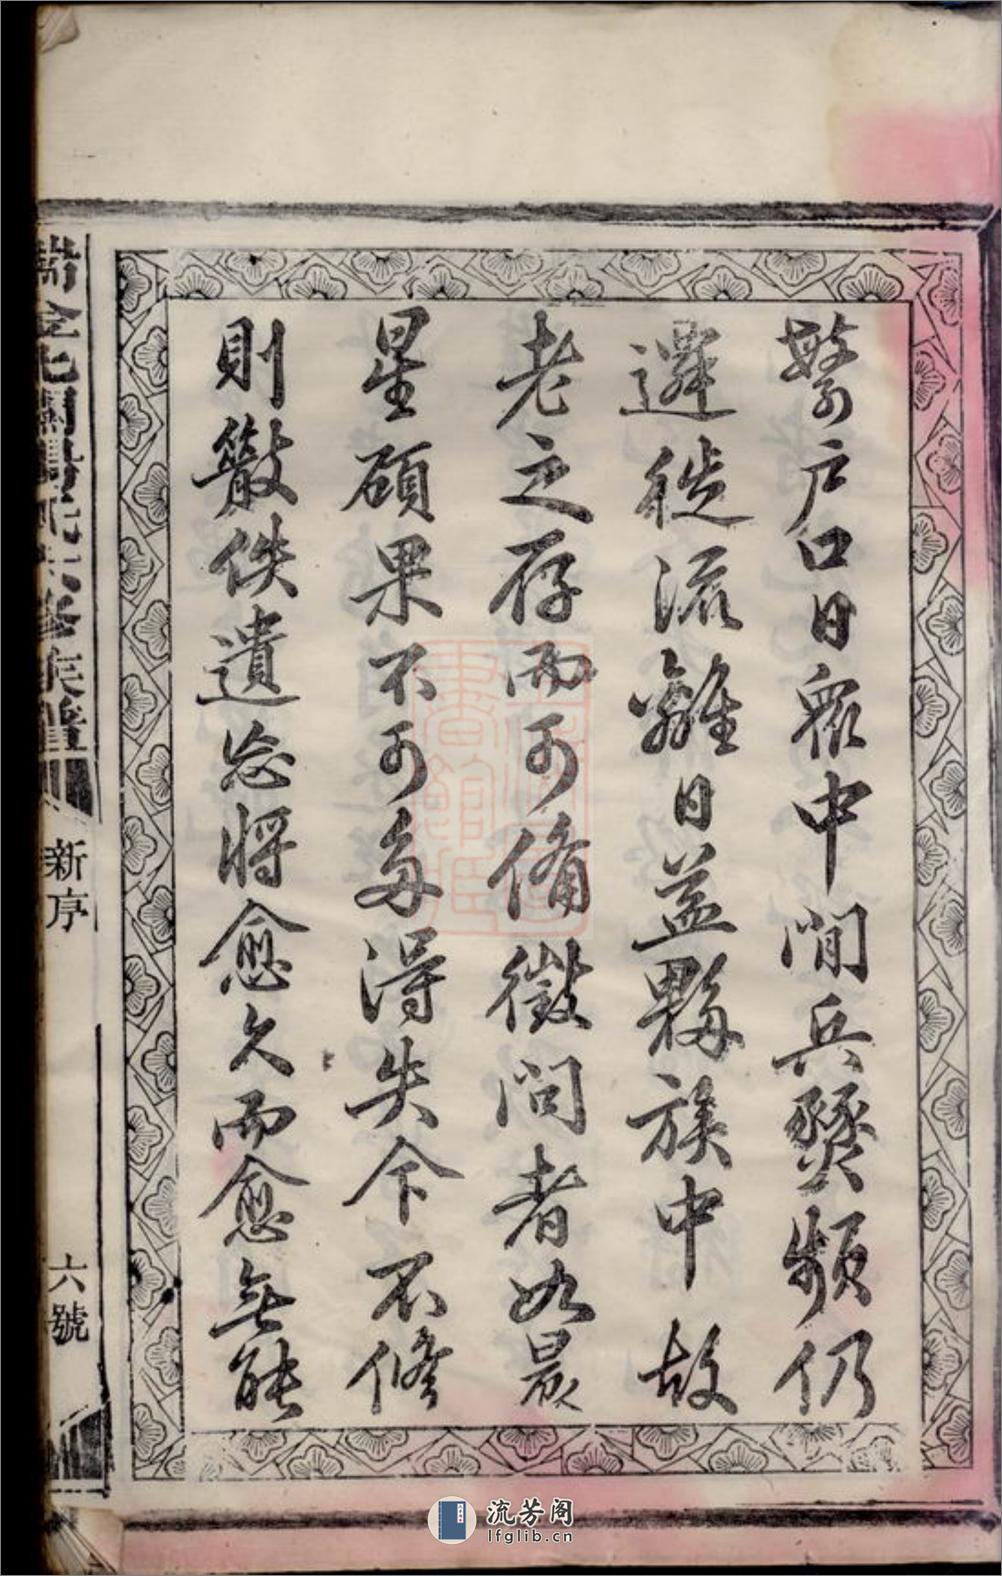 繁戶口日眾中間兵燹頻仍
遷徙流離日益夥族中故
老之存而可備徵問者如晨
星碩果不可多得失今不修
則散佚遺忘將愈久而愈無能
新序
六號
流芳阁
lfglib.cn